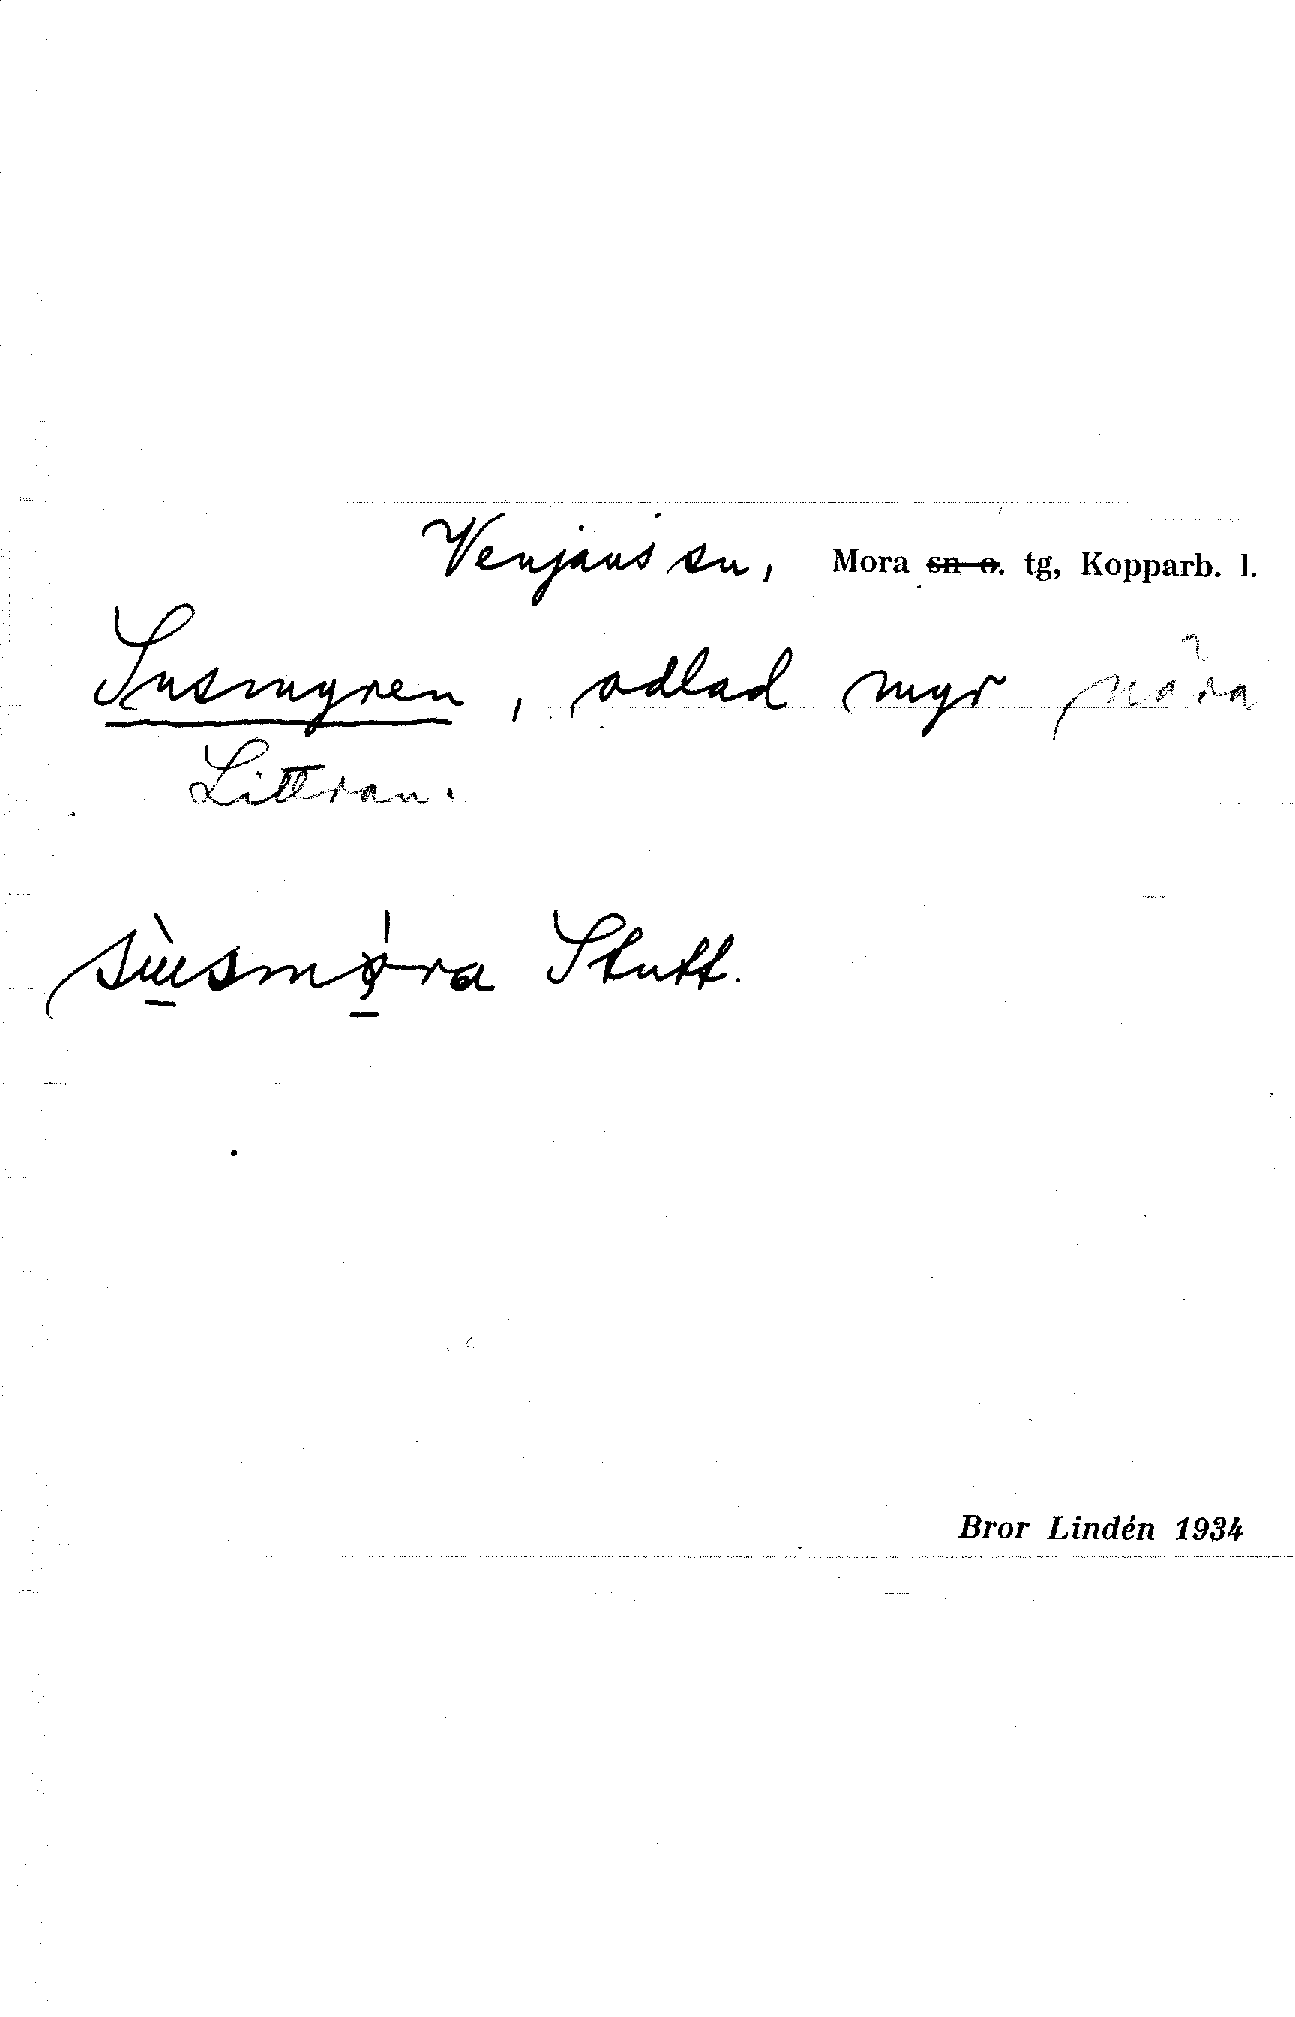 Venjans sn, Mora sn o. tg, Kopparb. l.
Susmyren, odlad myr nära
Littran.
Stutt.
Bror Lindén 1934